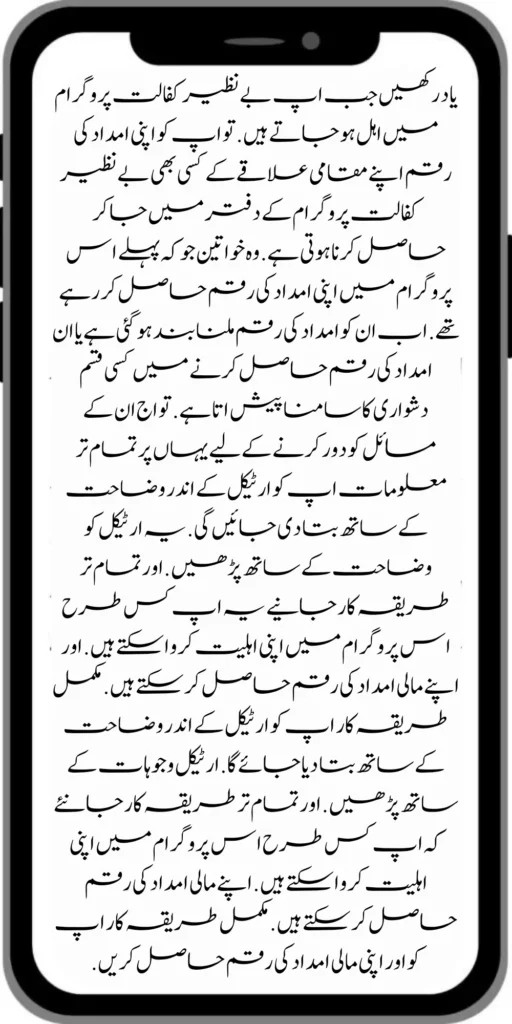 یاد رکھیں جب اپ بے نظیر کفالت پروگرام
میں اہل ہو جاتے ہیں. تو اپ کو اپنی امداد کی
رقم اپنے مقامی علاقے کے کسی بھی بے نظیر
کفالت پروگرام کے دفتر میں جا کر
حاصل کرنا ہوتی ہے. وہ خواتین جو کہ پہلے اس
پروگرام میں اپنی امداد کی رقم حاصل کر رہے
تھے. اب ان کو امداد کی رقم ملنا بند ہو گئی ہے یا ان
امداد کی رقم حاصل کرنے میں کسی قسم
دشواری کا سامنا پیش اتا ہے. تو اج ان کے
مسائل کو دور کرنے کے لیے یہاں پر تمام تر
معلومات اپ کو ارٹیکل کے اندر وضاحت
کے ساتھ بتا دی جائیں گی. یہ ارٹیکل کو
وضاحت کے ساتھ پڑھیں. اور تمام تر
طریقہ کار جانیے یہ اپ کس طرح
اس پروگرام میں اپنی اہلیت کروا سکتے ہیں. اور
اپنے مالی امداد کی رقم حاصل کر سکتے ہیں. مکمل
طریقہ کار اپ کو ارٹیکل کے اندر وضاحت
کے ساتھ بتا دیا جائے گا. ارٹیکل وجوہات کے
ساتھ پڑھیں. اور تمام تر طریقہ کار جانئے
کہ اپ کس طرح اس پروگرام میں اپنی
اہلیت کروا سکتے ہیں. اپنے مالی امداد کی رقم
حاصل کر سکتے ہیں. مکمل طریقہ کار اپ
کو اور اپنی مالی امداد کی رقم حاصل کریں.